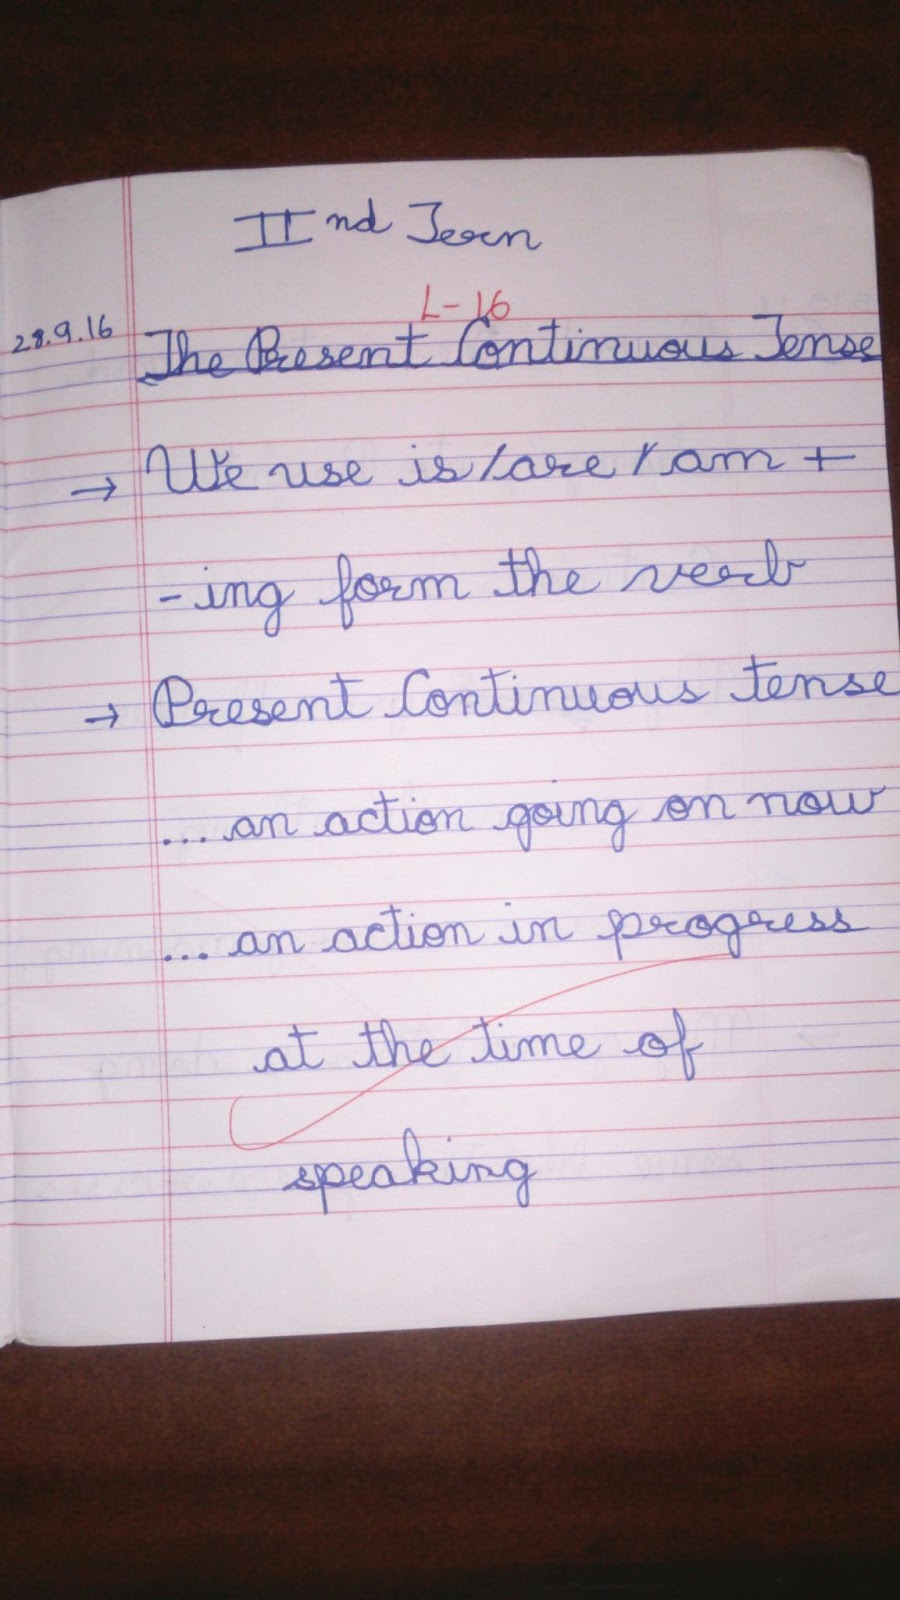 IInd Tern
L-16
28.9.16 The Present Continuous Tense
→ We use is/are/am +
-ing form the verb
→ Present Continuous tense
... an action going on now
... an action in progress
at the time of
speaking